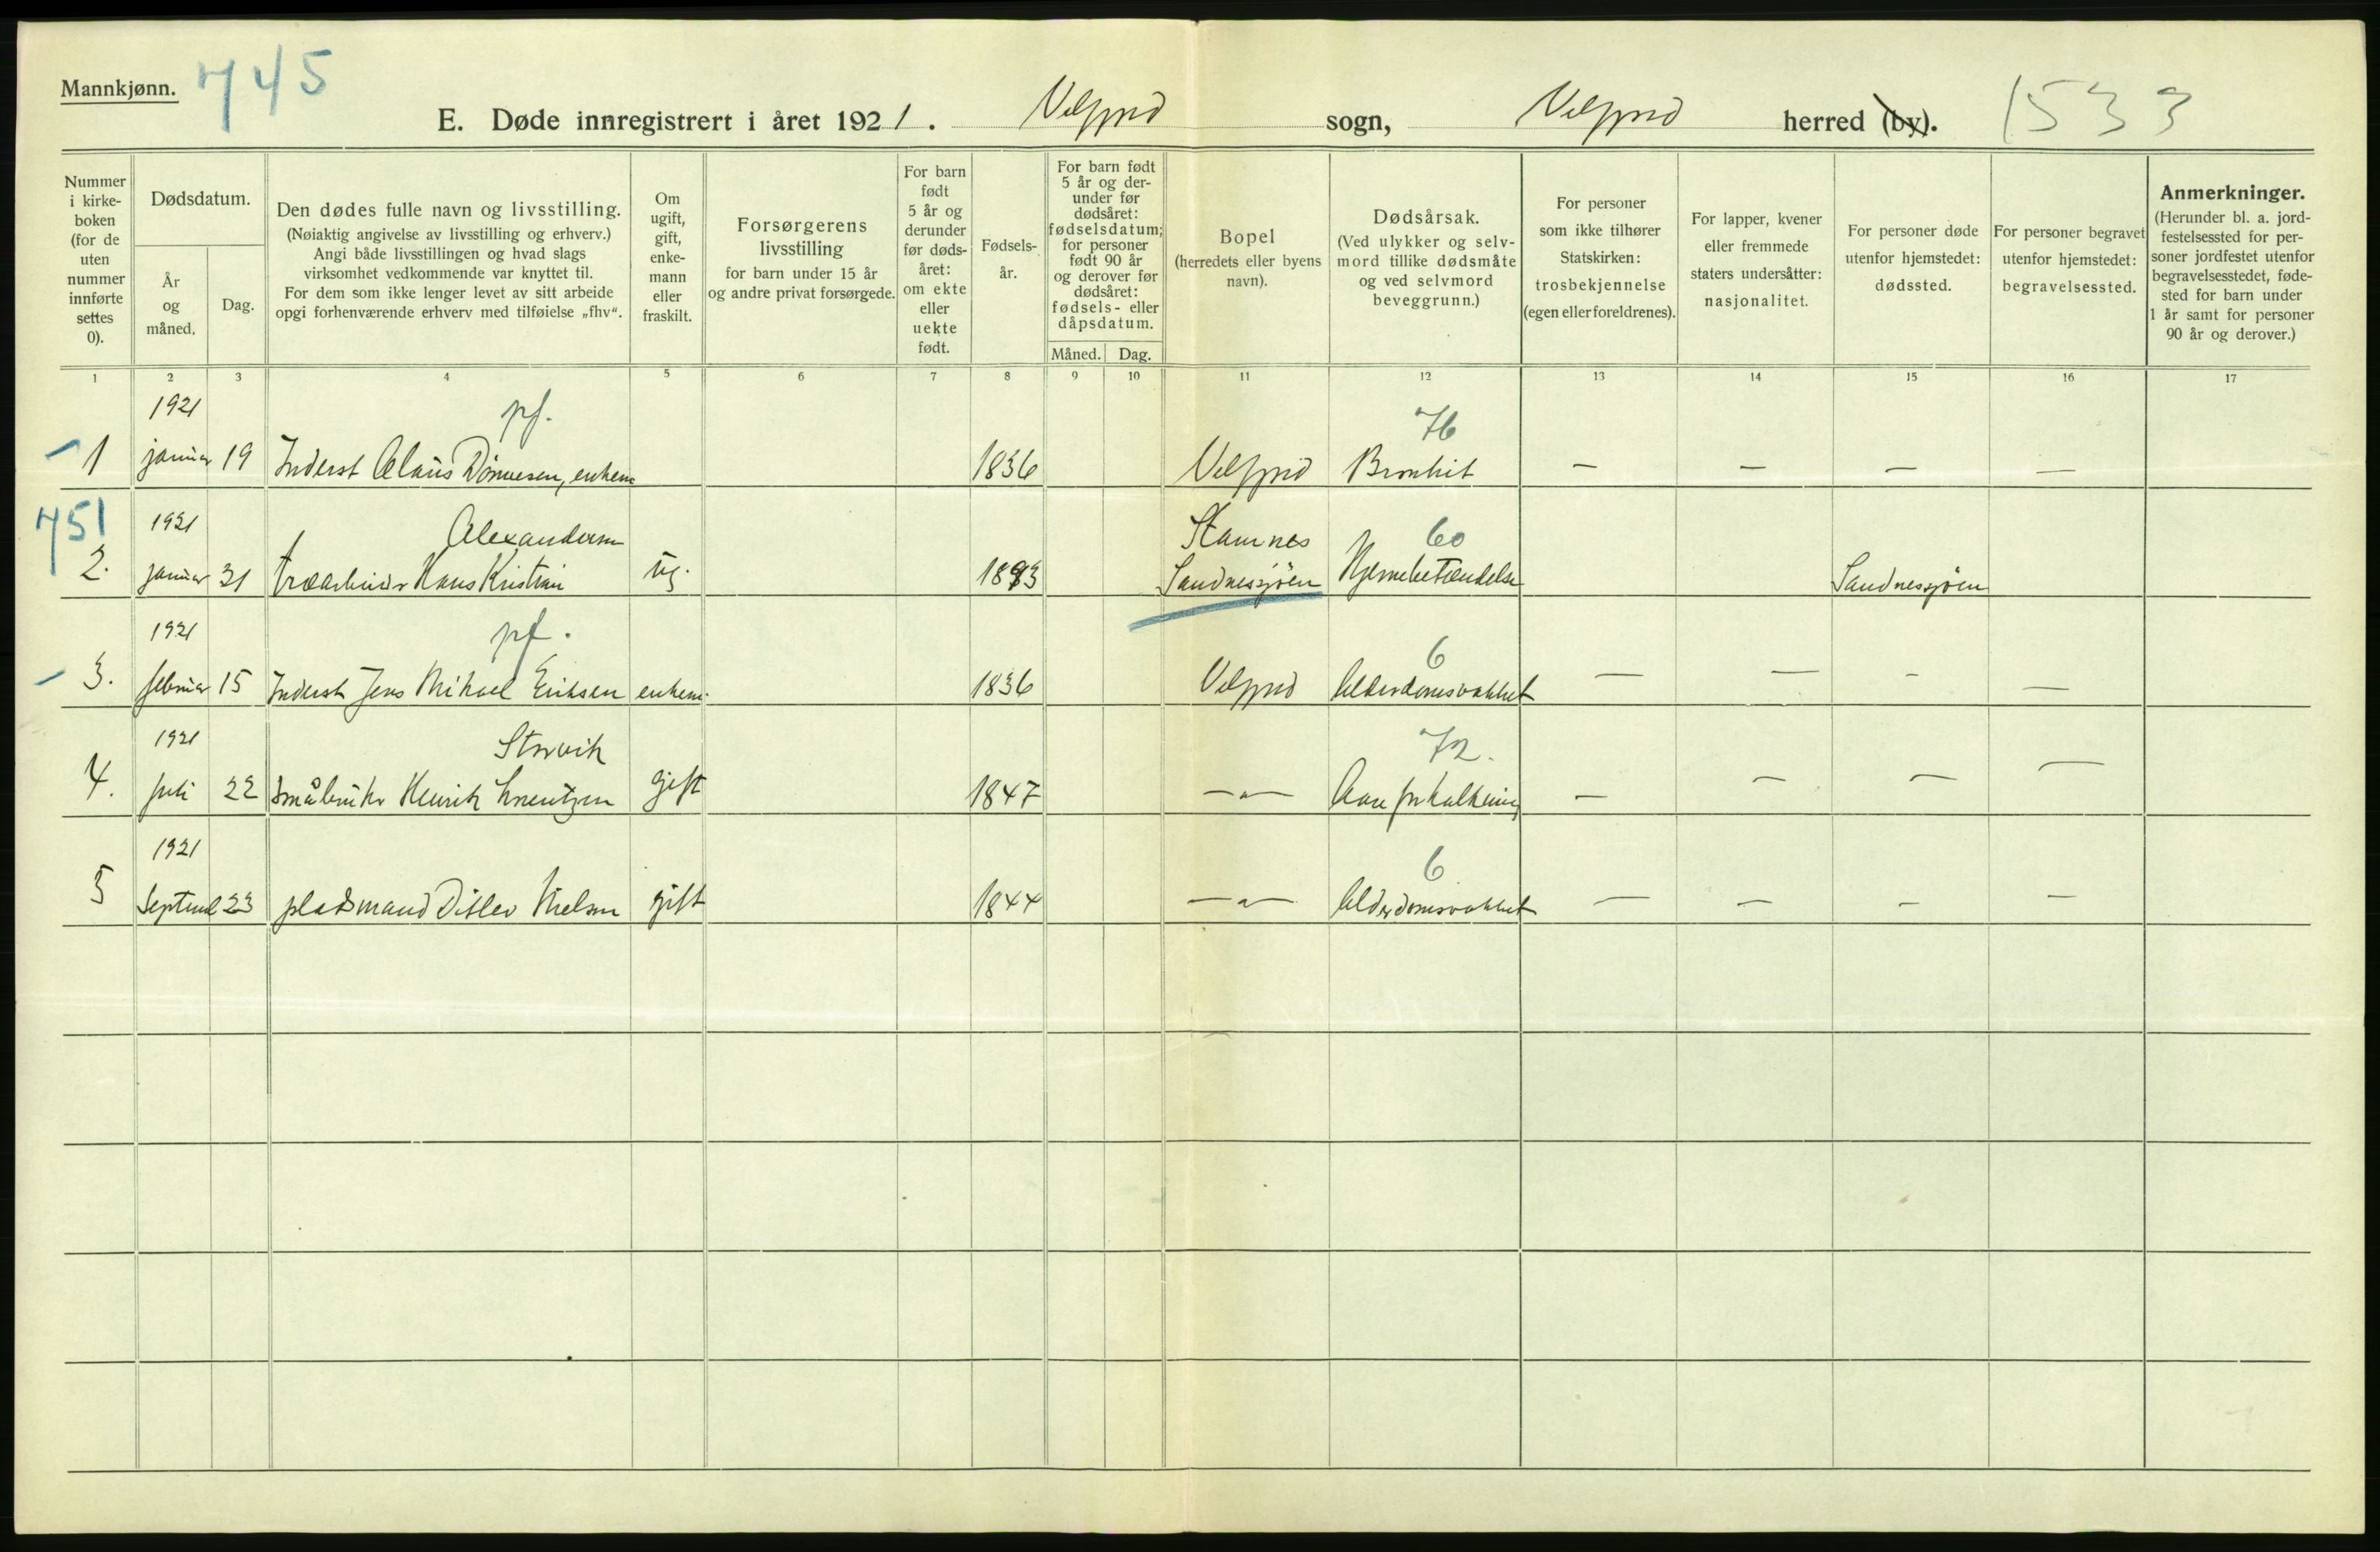 Mannkjønn. 745
E. Døde innregistrert i året 1921. Velfjord sogn, Velfjord herred (by). 1533
Nummer i kirke- boken (for de uten nummer innførte settes 0).
Dødsdatum.
År og måned.
Dag.
Den dødes fulle navn og livsstilling.
(Nøiaktig angivelse av livsstilling og erhverv.)
Angi både livsstillingen og hvad slags
virksomhet vedkommende var knyttet til.
For dem som ikke lenger levet av sitt arbeide
opgi forhenværende erhverv med tilføielse „fhv“.
Om ugift, gift, enke- mann eller fraskilt.
Forsørgerens
livsstilling
for barn under 15 år
og andre privat forsørgede.
For barn født 5 år og derunder før døds- året: om ekte eller uekte født.
Fødsels- år.
For barn født 5 år og der- under før dødsåret: fødselsdatum; for personer født 90 år og derover før dødsåret: fødsels- eller dåpsdatum.
Måned. Dag.
Bopel
(herredets eller byens
navn).
Dødsårsak.
(Ved ulykker og selv-
mord tillike dødsmåte
og ved selvmord
beveggrunn.)
For personer
som ikke tilhører
Statskirken:
trosbekjennelse
(egen eller foreldrenes).
For lapper, kvener
eller fremmede
staters undersåtter:
nasjonalitet.
For personer døde
utenfor hjemstedet:
dødssted.
For personer begravet
utenfor hjemstedet:
begravelsessted.
Anmerkninger.
(Herunder bl. a. jord-
festelsessted for per-
soner jordfestet utenfor
begravelsesstedet, føde-
sted for barn under
1 år samt for personer
90 år og derover.)
1 2 3 4 5 6 7 8 9 10 11 12 13 14 15 16 17
1921 pf. 76
1 januar 19 Inderst Claus enkem 1836 Velfjord Bronkit — — — —
751 1921 Alexandersen Stamnes 60
2. januar 31 træarbeider Hans Kristian ug. 1893 Sandnessjöen Hjernebetændelse Sandnessjöen
1921 pf. 6
3. februar 15 Inderst Jens Mikael Eriksen enkem. 1836 Velfjord Alderdomsvakhet — — — —
1921 Storvik 72.
4. juli 22 Småbruker Henrik Lorentzen gift 1847 —„— Aareforkalkning — — — —
1921 6
5 Septemb 23 pladsmand Ditlev Nielsen gift 1844 —„— Alderdomsvakhet — — — —